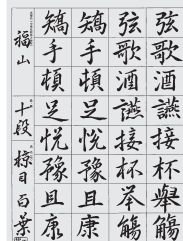 弦歌酒讌接杯舉觴
弦歌酒讌接杯举觴
矯手頓足悅豫且康
矯手頓足悅豫且康
福山 十段